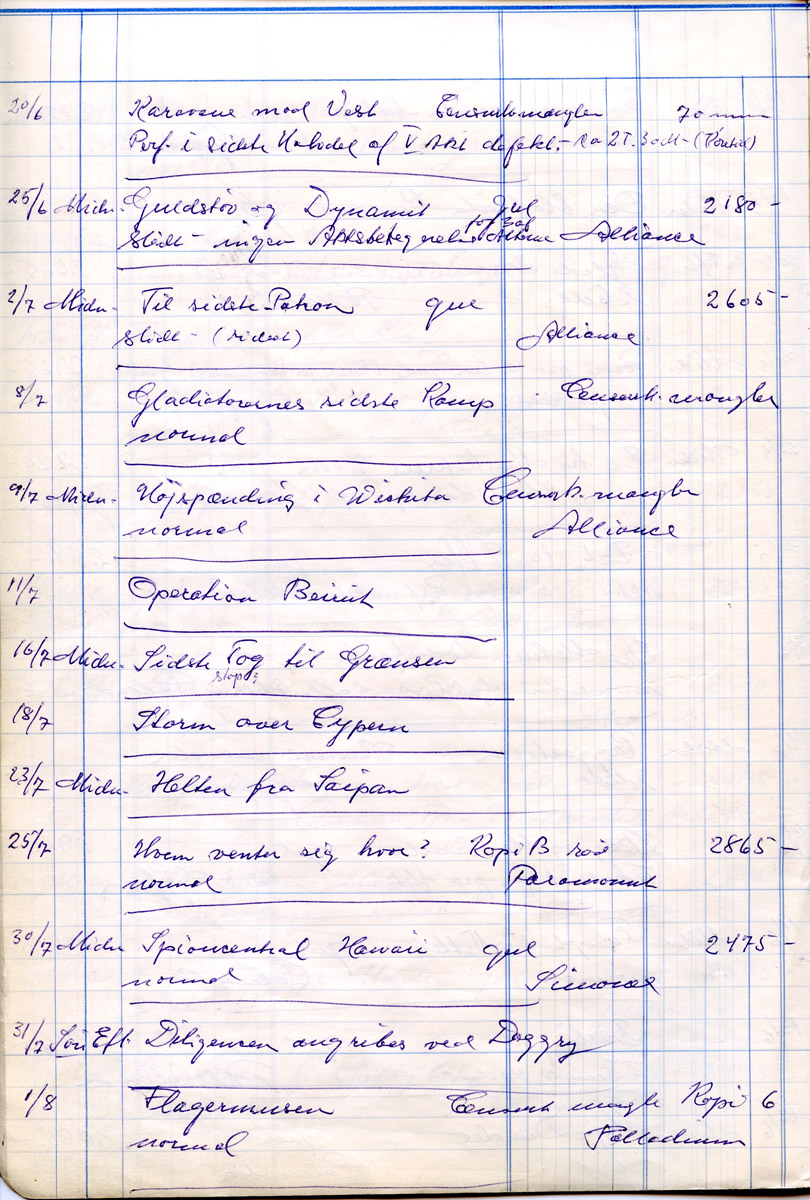 20/6 Karavane mod Vest Censurk. mangler 70 mm
Perf. i sidste Halvdel af V Akt defekt.
25/6 Midn. Guldstøv og Dynamit gul 2180 -
Slidt - ingen Aktsbetegnelse Alliance
2/7 Midn. Til sidste Patron gul 2605 -
Slidt - (ridset) Alliance
8/7 Gladiatorernes sidste Kamp Censurk. mangler
normal
9/7 Midn. Højspænding i Wichita Censurk. mangler
normal Alliance
11/7 Operation Beirut
16/7 Midn. Sidste Tog til Grænsen
stop
18/7 Storm over Cypern
23/7 Midn. Helten fra Saipan
25/7 Hvem venter sig hvor? Kopi B rød 2865 -
normal Paramount
30/7 Midn Spioncentral Hawaii gul 2475 -
normal
31/7 Søn Eft. Diligencen angribes ved Daggry
1/8 Flagermusen Censurk mangler Kopi 6
normal Palladium